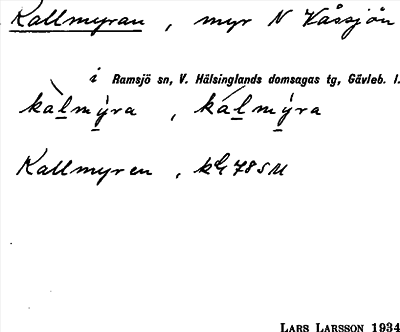 Kallmyran, myr N Våssjön
i Ramsjö sn, V. Hälsinglands domsagas tg, Gävleb. l.
kàlmy̌ra, kálmýra
Kallmyren, 78 SM
LARS LARSSON 1934